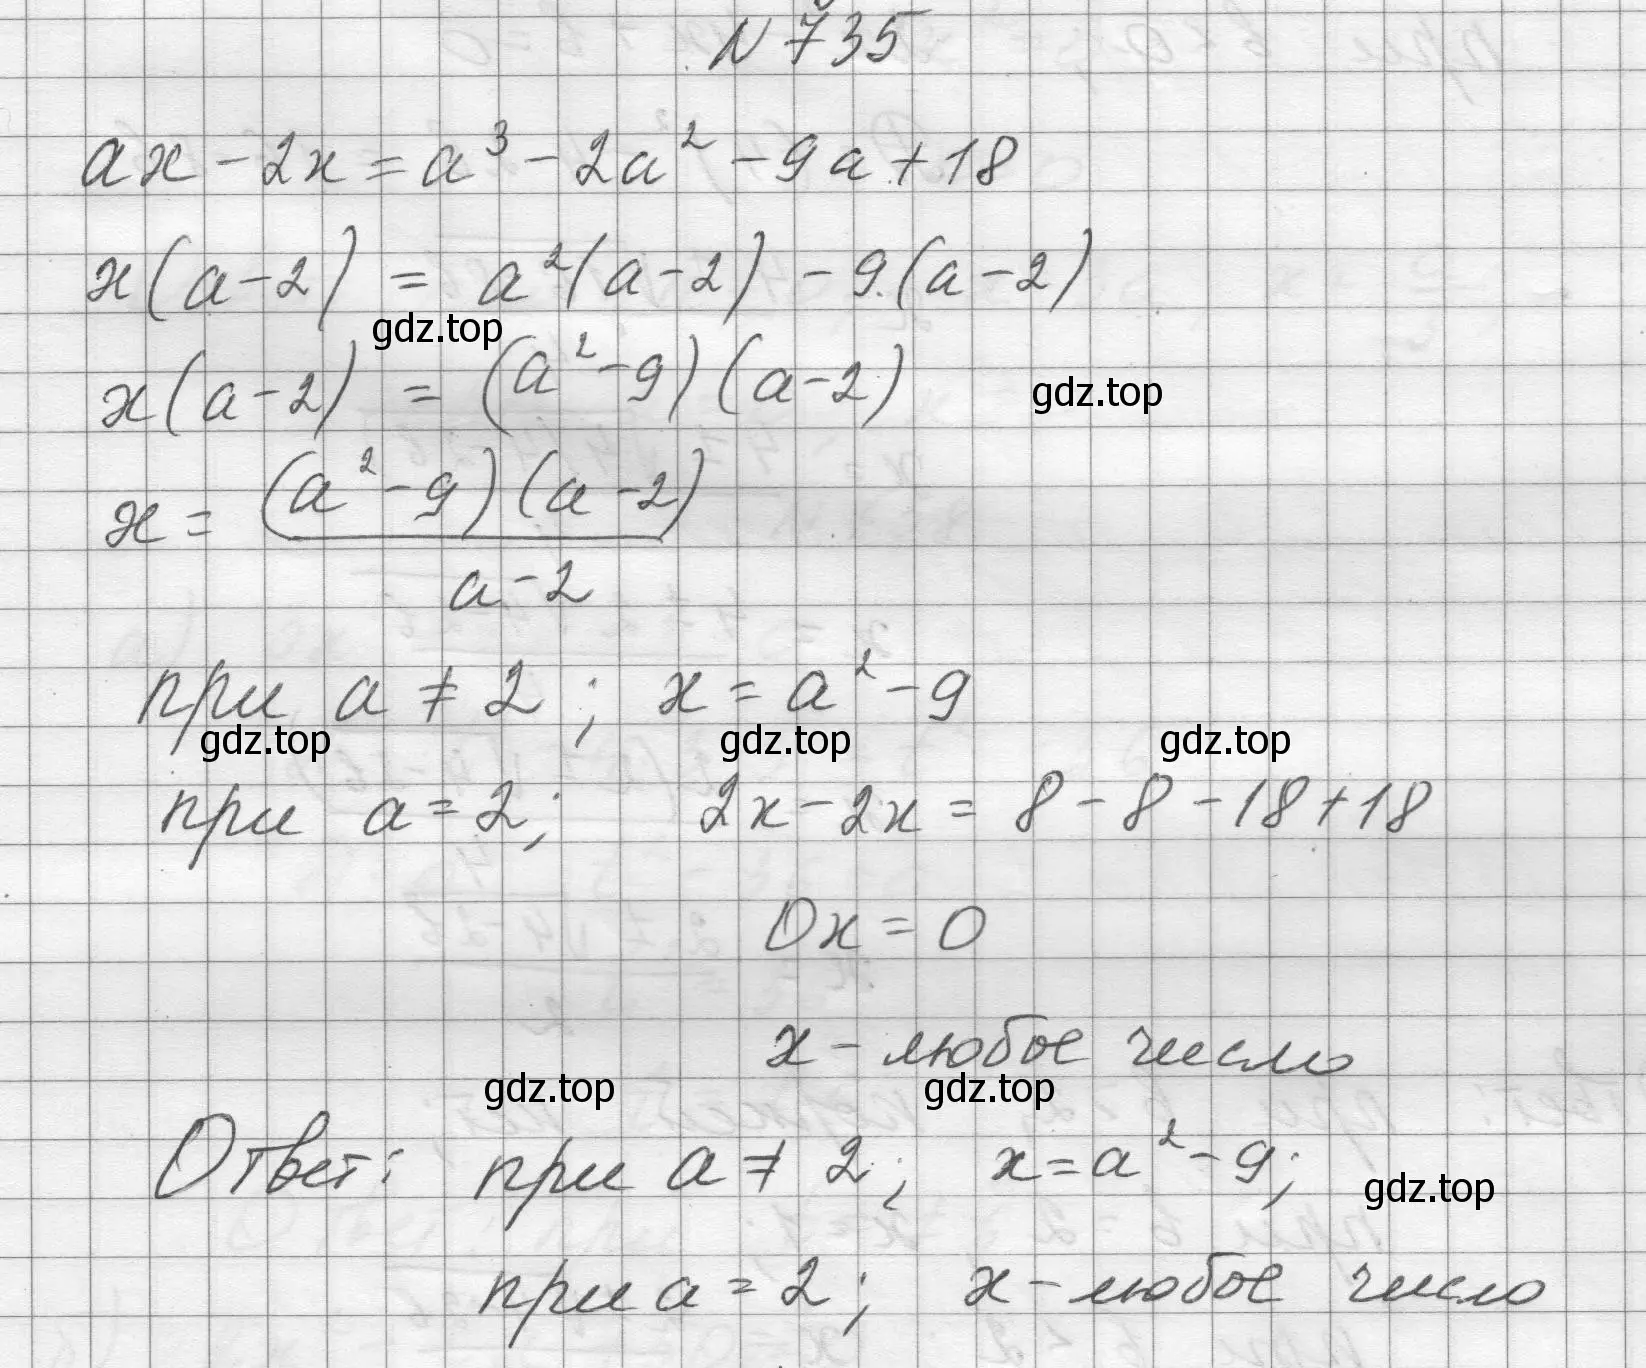 N 735
ax - 2x = a³ - 2a² - 9a + 18
x(a-2) = a²(a-2) - 9(a-2)
gdz.top
x(a-2) = (a²-9)(a-2)
gdz.top
x = (a²-9)(a-2)
a-2
при a ≠ 2; x = a² - 9
gdz.top gdz.top gdz.top
при a = 2; 2x - 2x = 8 - 8 - 18 + 18
0x = 0
x - любое число
gdz.top gdz.top
Ответ: при a ≠ 2; x = a² - 9;
gdz.top
при a = 2; x - любое число